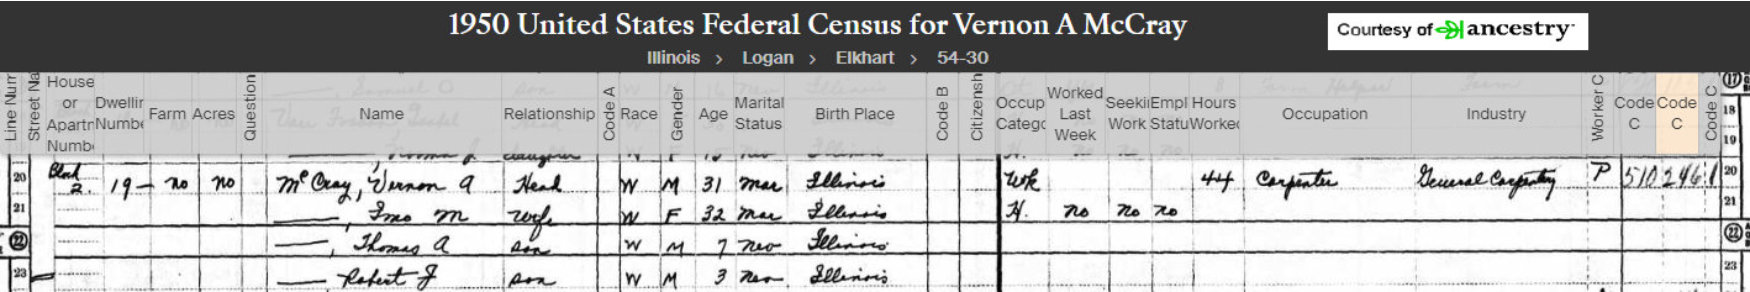 1950 United States Federal Census for Vernon A McCray
Courtesy of ancestry
Illinois > Logan > Elkhart > 54-30
Line Num Street Na House or Apartn Numb Dwellin Numbe Farm Acres Question Name Relationship Code A Race Gender Age Marital Status Birth Place Code B Citizensh Occup Catego Worked Last Week Seekin Work Empl Statu Hours Worked Occupation Industry Worker C Code C Code C Code C
17
Samuel O son W M 16 nev Illinois Farm Helper Farm
18
Head
19 Norma J. daughter W F 15 nev Illinois H. no no no 19
20 Block 2. 19 — no no McCray, Vernon A Head W M 31 mar Illinois Wk 44 Carpenter General Carpentry P 510 246 1 20
21 ——, Imo M wife W F 32 mar Illinois H. no no no 21
22 ——, Thomas A son W M 7 nev Illinois 22
23 —— Robert J son W M 3 nev Illinois 23